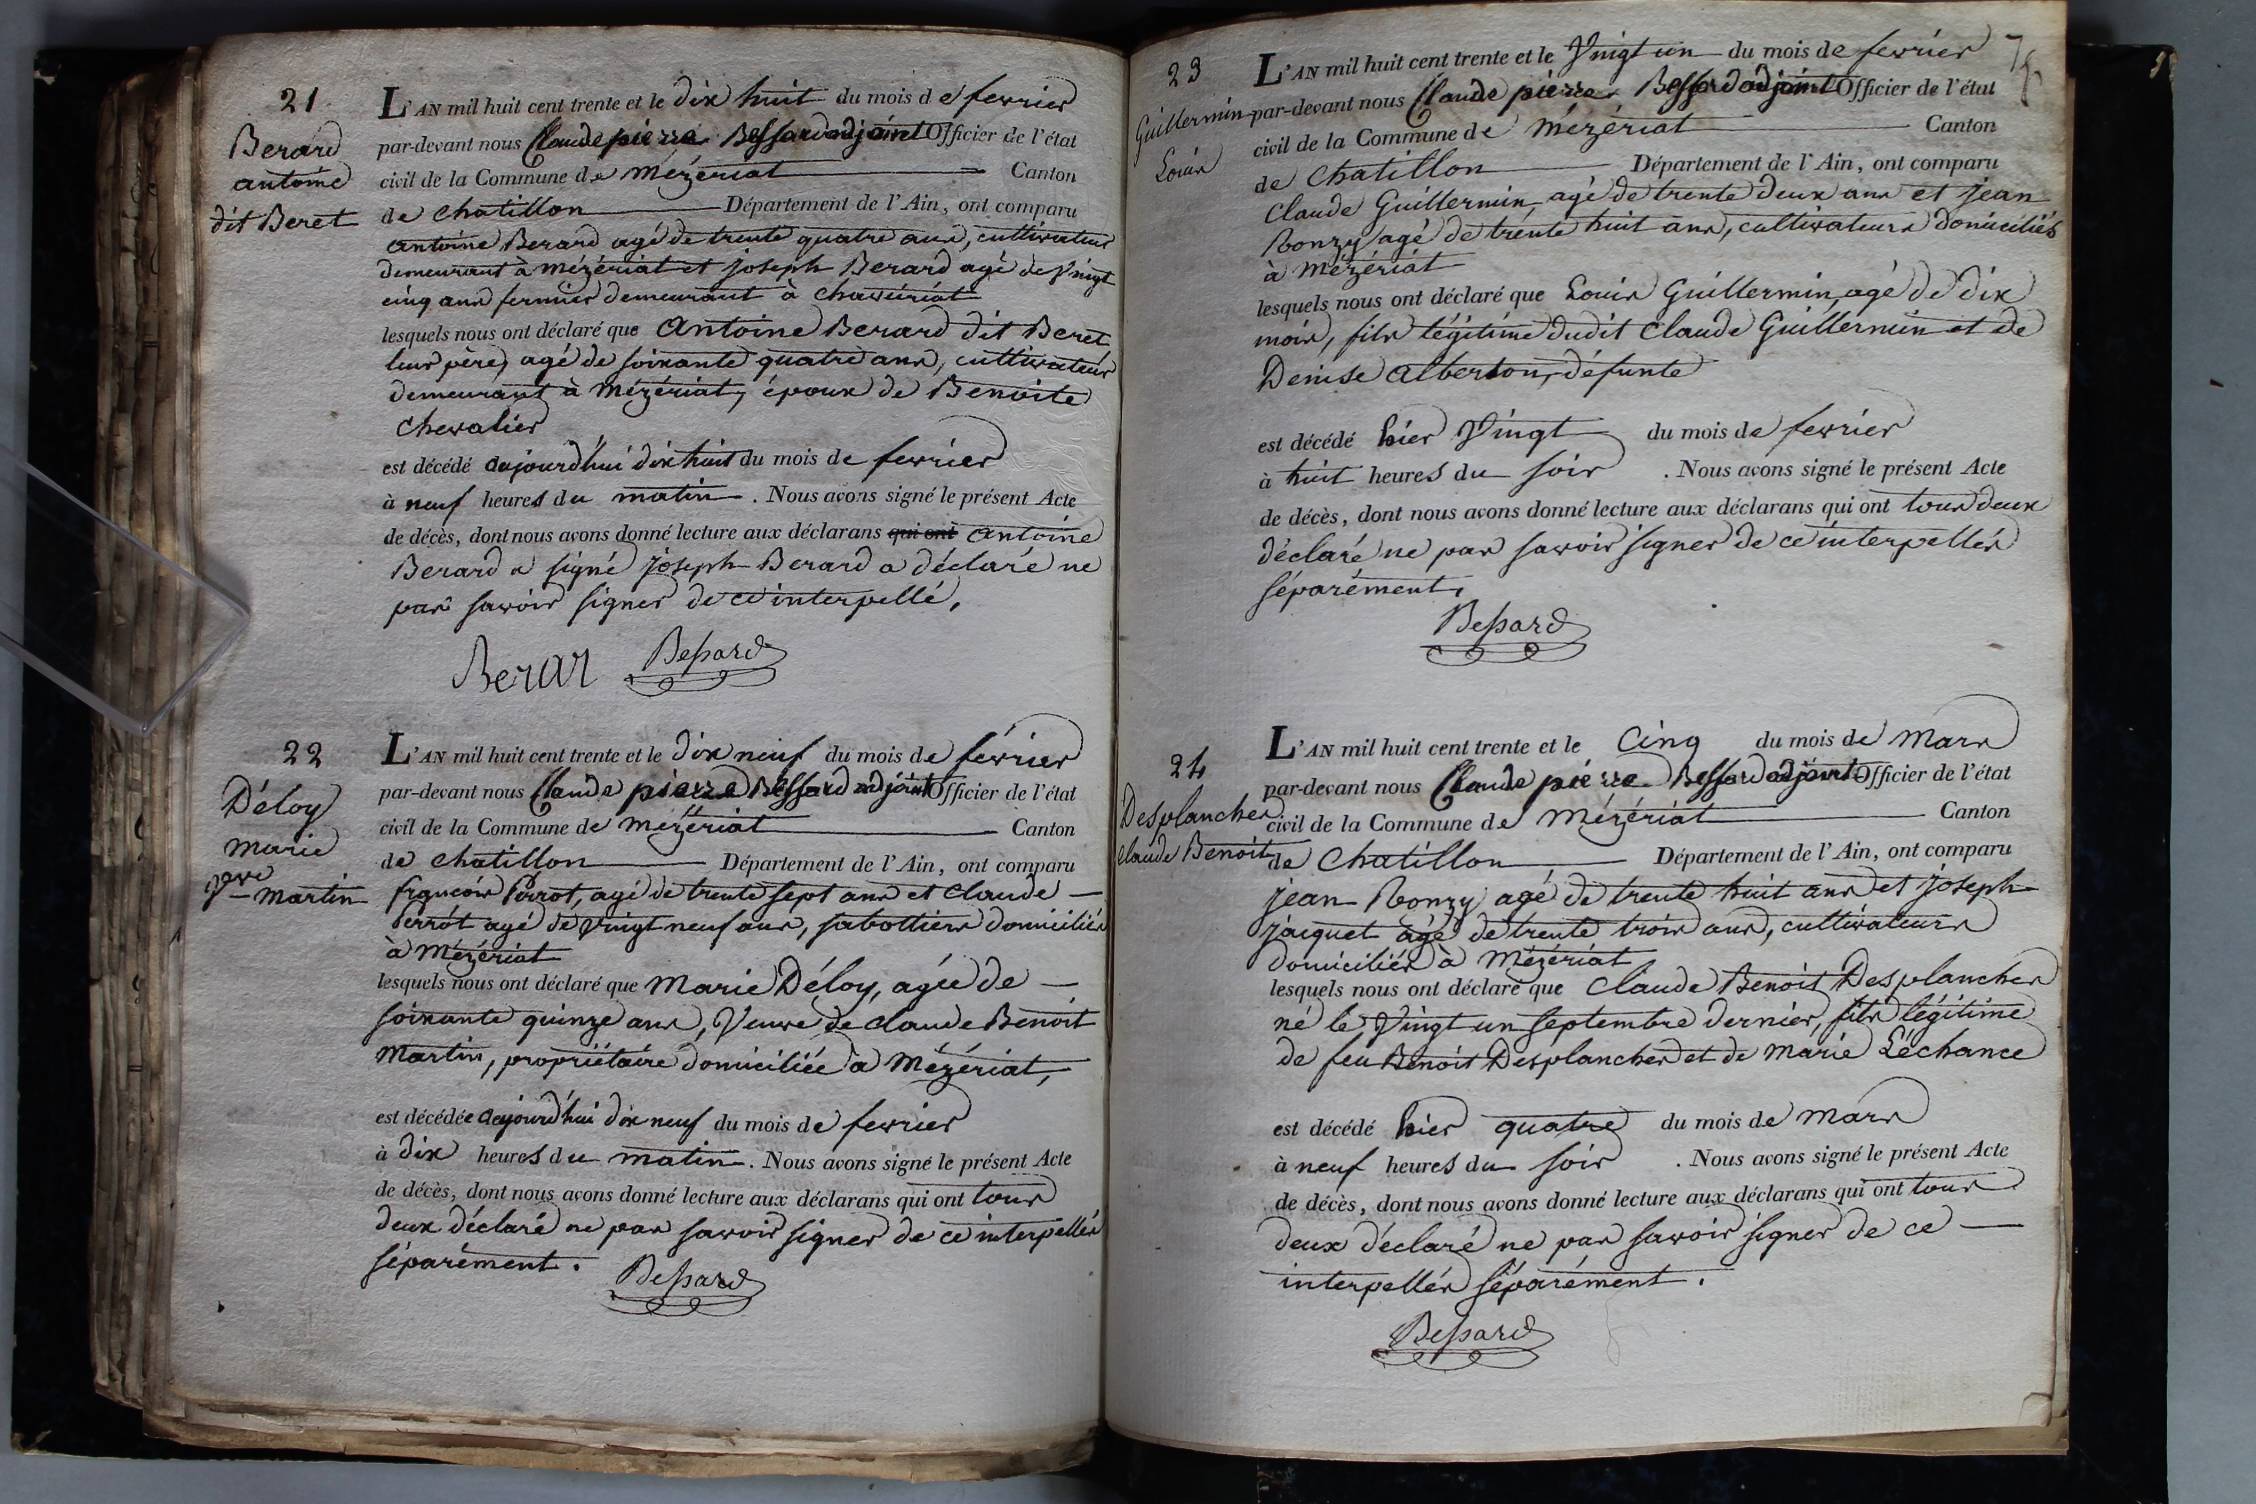 21
Berard
antoine
dit Beret
L'AN mil huit cent trente et le dix huit du mois de fevrier
par-devant nous Claude pierre Bessard adjoint Officier de l'état
civil de la Commune de Mézériat Canton
de chatillon Département de l'Ain, ont comparu
antoine Berard agé de trente quatre ans, cultivateur
demeurant à mézériat et joseph Berard agé de vingt
cinq ans fermier demeurant à chaveiriat
lesquels nous ont déclaré que Antoine Berard dit Beret
leur père, agé de soixante quatre ans, cultivateur
demeurant à Mézériat, époux de Benoite
chevalier
est décédé aujourd'hui dix huit du mois de fevrier
à neuf heures du matin. Nous avons signé le présent Acte
de décès, dont nous avons donné lecture aux déclarans qui ont antoine
Berard a signé joseph Berard a déclaré ne
pas savoir signer de ce interpellé,
Berar Bessard
22
Déloy
marie
martin
L'AN mil huit cent trente et le dix neuf du mois de février
par-devant nous Claude pierre Bessard adjoint Officier de l'état
civil de la Commune de mézériat Canton
de chatillon Département de l'Ain, ont comparu
françois Perrot, agé de trente sept ans et claude
Perrot agé de vingt neuf ans, sabottiers domiciliés
à Mézériat
lesquels nous ont déclaré que Marie Déloy, agée de
soixante quinze ans, Veuve de claude Benoit
Martin, propriétaire domiciliée à Mézériat,
est décédée aujourd'hui dix neuf du mois de fevrier
à dix heures du matin. Nous avons signé le présent Acte
de décès, dont nous avons donné lecture aux déclarans qui ont tous
deux déclaré ne pas savoir signer de ce interpellés
séparément.
Bessard
23
Guillermin
Louis
L'AN mil huit cent trente et le Vingt un du mois de fevrier
par-devant nous Claude pierre Bessard adjoint Officier de l'état
civil de la Commune de mézériat Canton
de chatillon Département de l'Ain, ont comparu
Claude Guillermin agé de trente deux ans et jean
Ronzy agé de trente huit ans, cultivateurs domiciliés
à mézériat
lesquels nous ont déclaré que Louis Guillermin, agé de dix
mois, fils légitime dudit Claude Guillermin et de
Denise alberton, défunte
est décédé hier Vingt du mois de fevrier
à huit heures du soir. Nous avons signé le présent Acte
de décès, dont nous avons donné lecture aux déclarans qui ont tous deux
déclaré ne pas savoir signer de ce interpellés
séparément,
Bessard
24
Desplanches
claude Benoit
L'AN mil huit cent trente et le Cinq du mois de mars
par-devant nous Claude pierre Bessard adjoint Officier de l'état
civil de la Commune de Mézériat Canton
de chatillon Département de l'Ain, ont comparu
jean Ronzy agé de trente huit ans et joseph
jaquet agé de trente trois ans, cultivateurs
domiciliés à mézériat
lesquels nous ont déclaré que Claude Benoit Desplanches
né le Vingt un septembre dernier, fils légitime
de feu Benoit Desplanches et de marie Léchance
est décédé hier quatre du mois de mars
à neuf heures du soir. Nous avons signé le présent Acte
de décès, dont nous avons donné lecture aux déclarans qui ont tous
deux déclaré ne pas savoir signer de ce
interpellés séparément.
Bessard